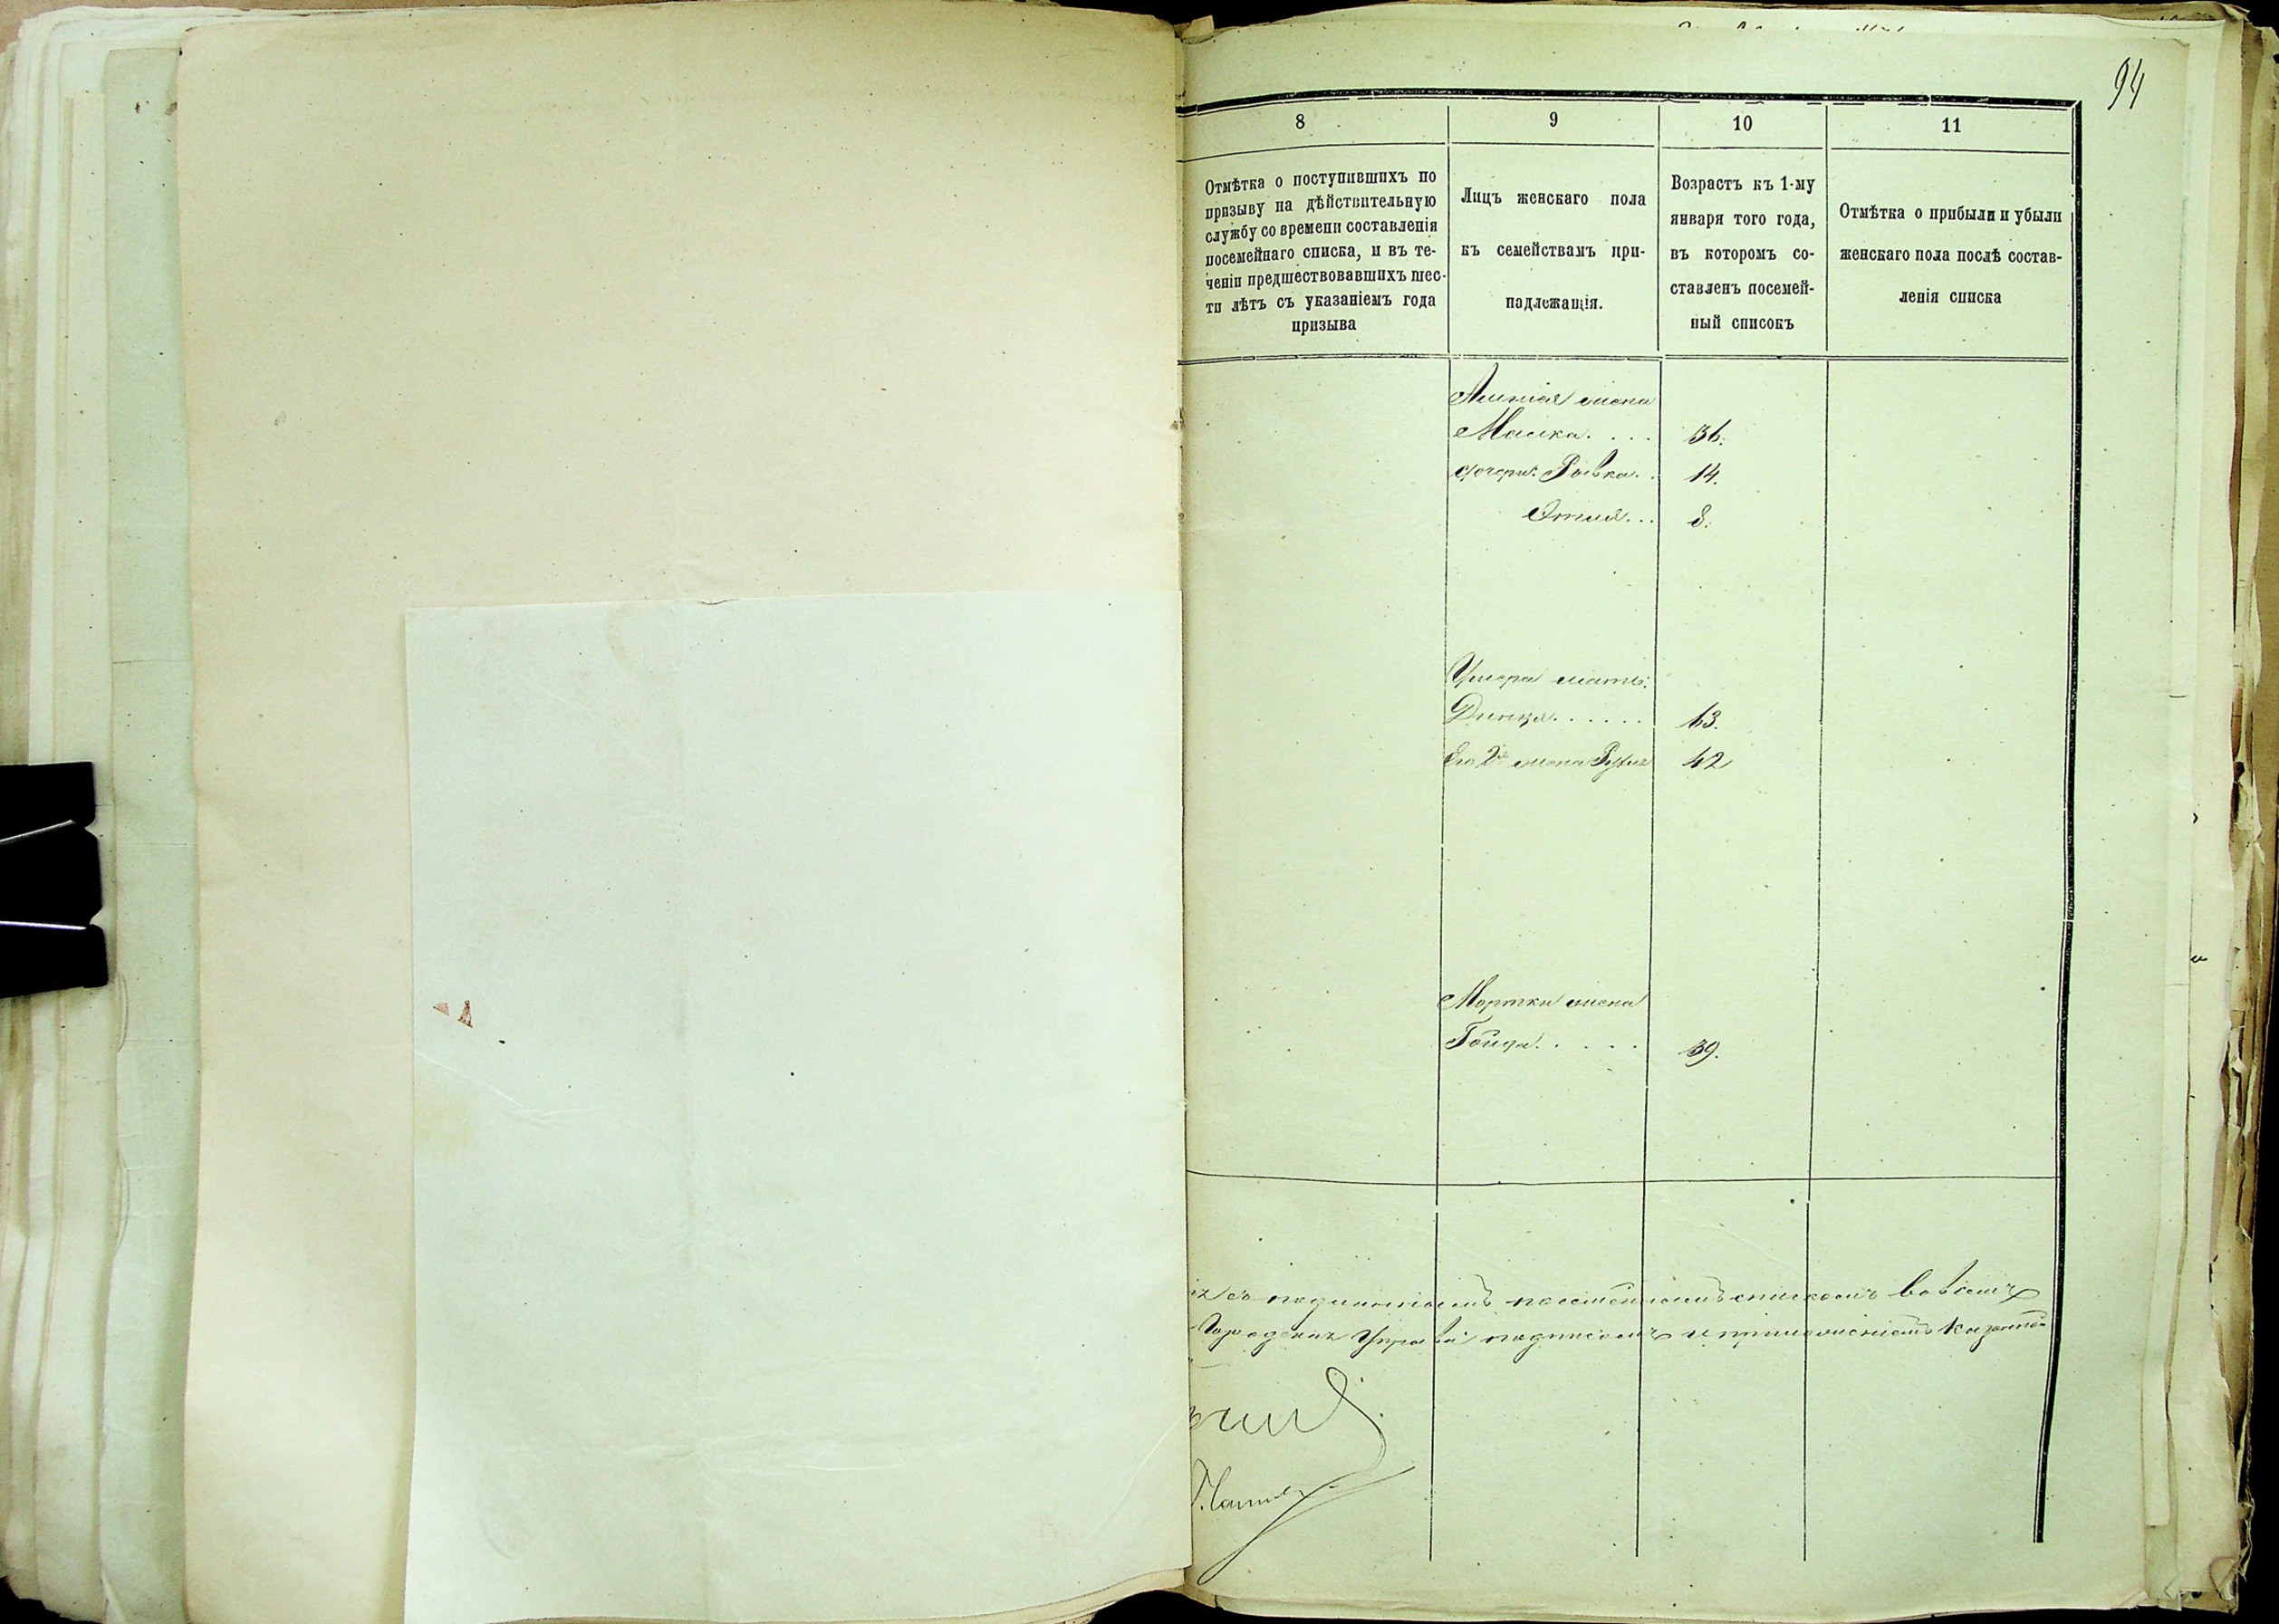 94
8
9
10
11
Отмѣтка о поступившихъ по
призыву на дѣйствительную
службу со времени составленія
посемейнаго списка, и въ те-
ченіи предшествовавшихъ шес-
ти лѣтъ съ указаніемъ года
призыва
Лицъ женскаго пола
къ семействамъ при-
надлежащія.
Возрастъ къ 1-му
января того года,
въ которомъ со-
ставленъ посемей-
ный списокъ
Отмѣтка о прибыли и убыли
женскаго пола послѣ состав-
ленія списка
жена
Маска. . . . 36.
дочери: Ривка. . 14.
Этля. . . 8.
мать:
63.
Его 2я жена 42
Мортки жена
39.
съ подлиннымъ посемейнымъ спискомъ
Городская Управа подписомъ и приложеніемъ казенной